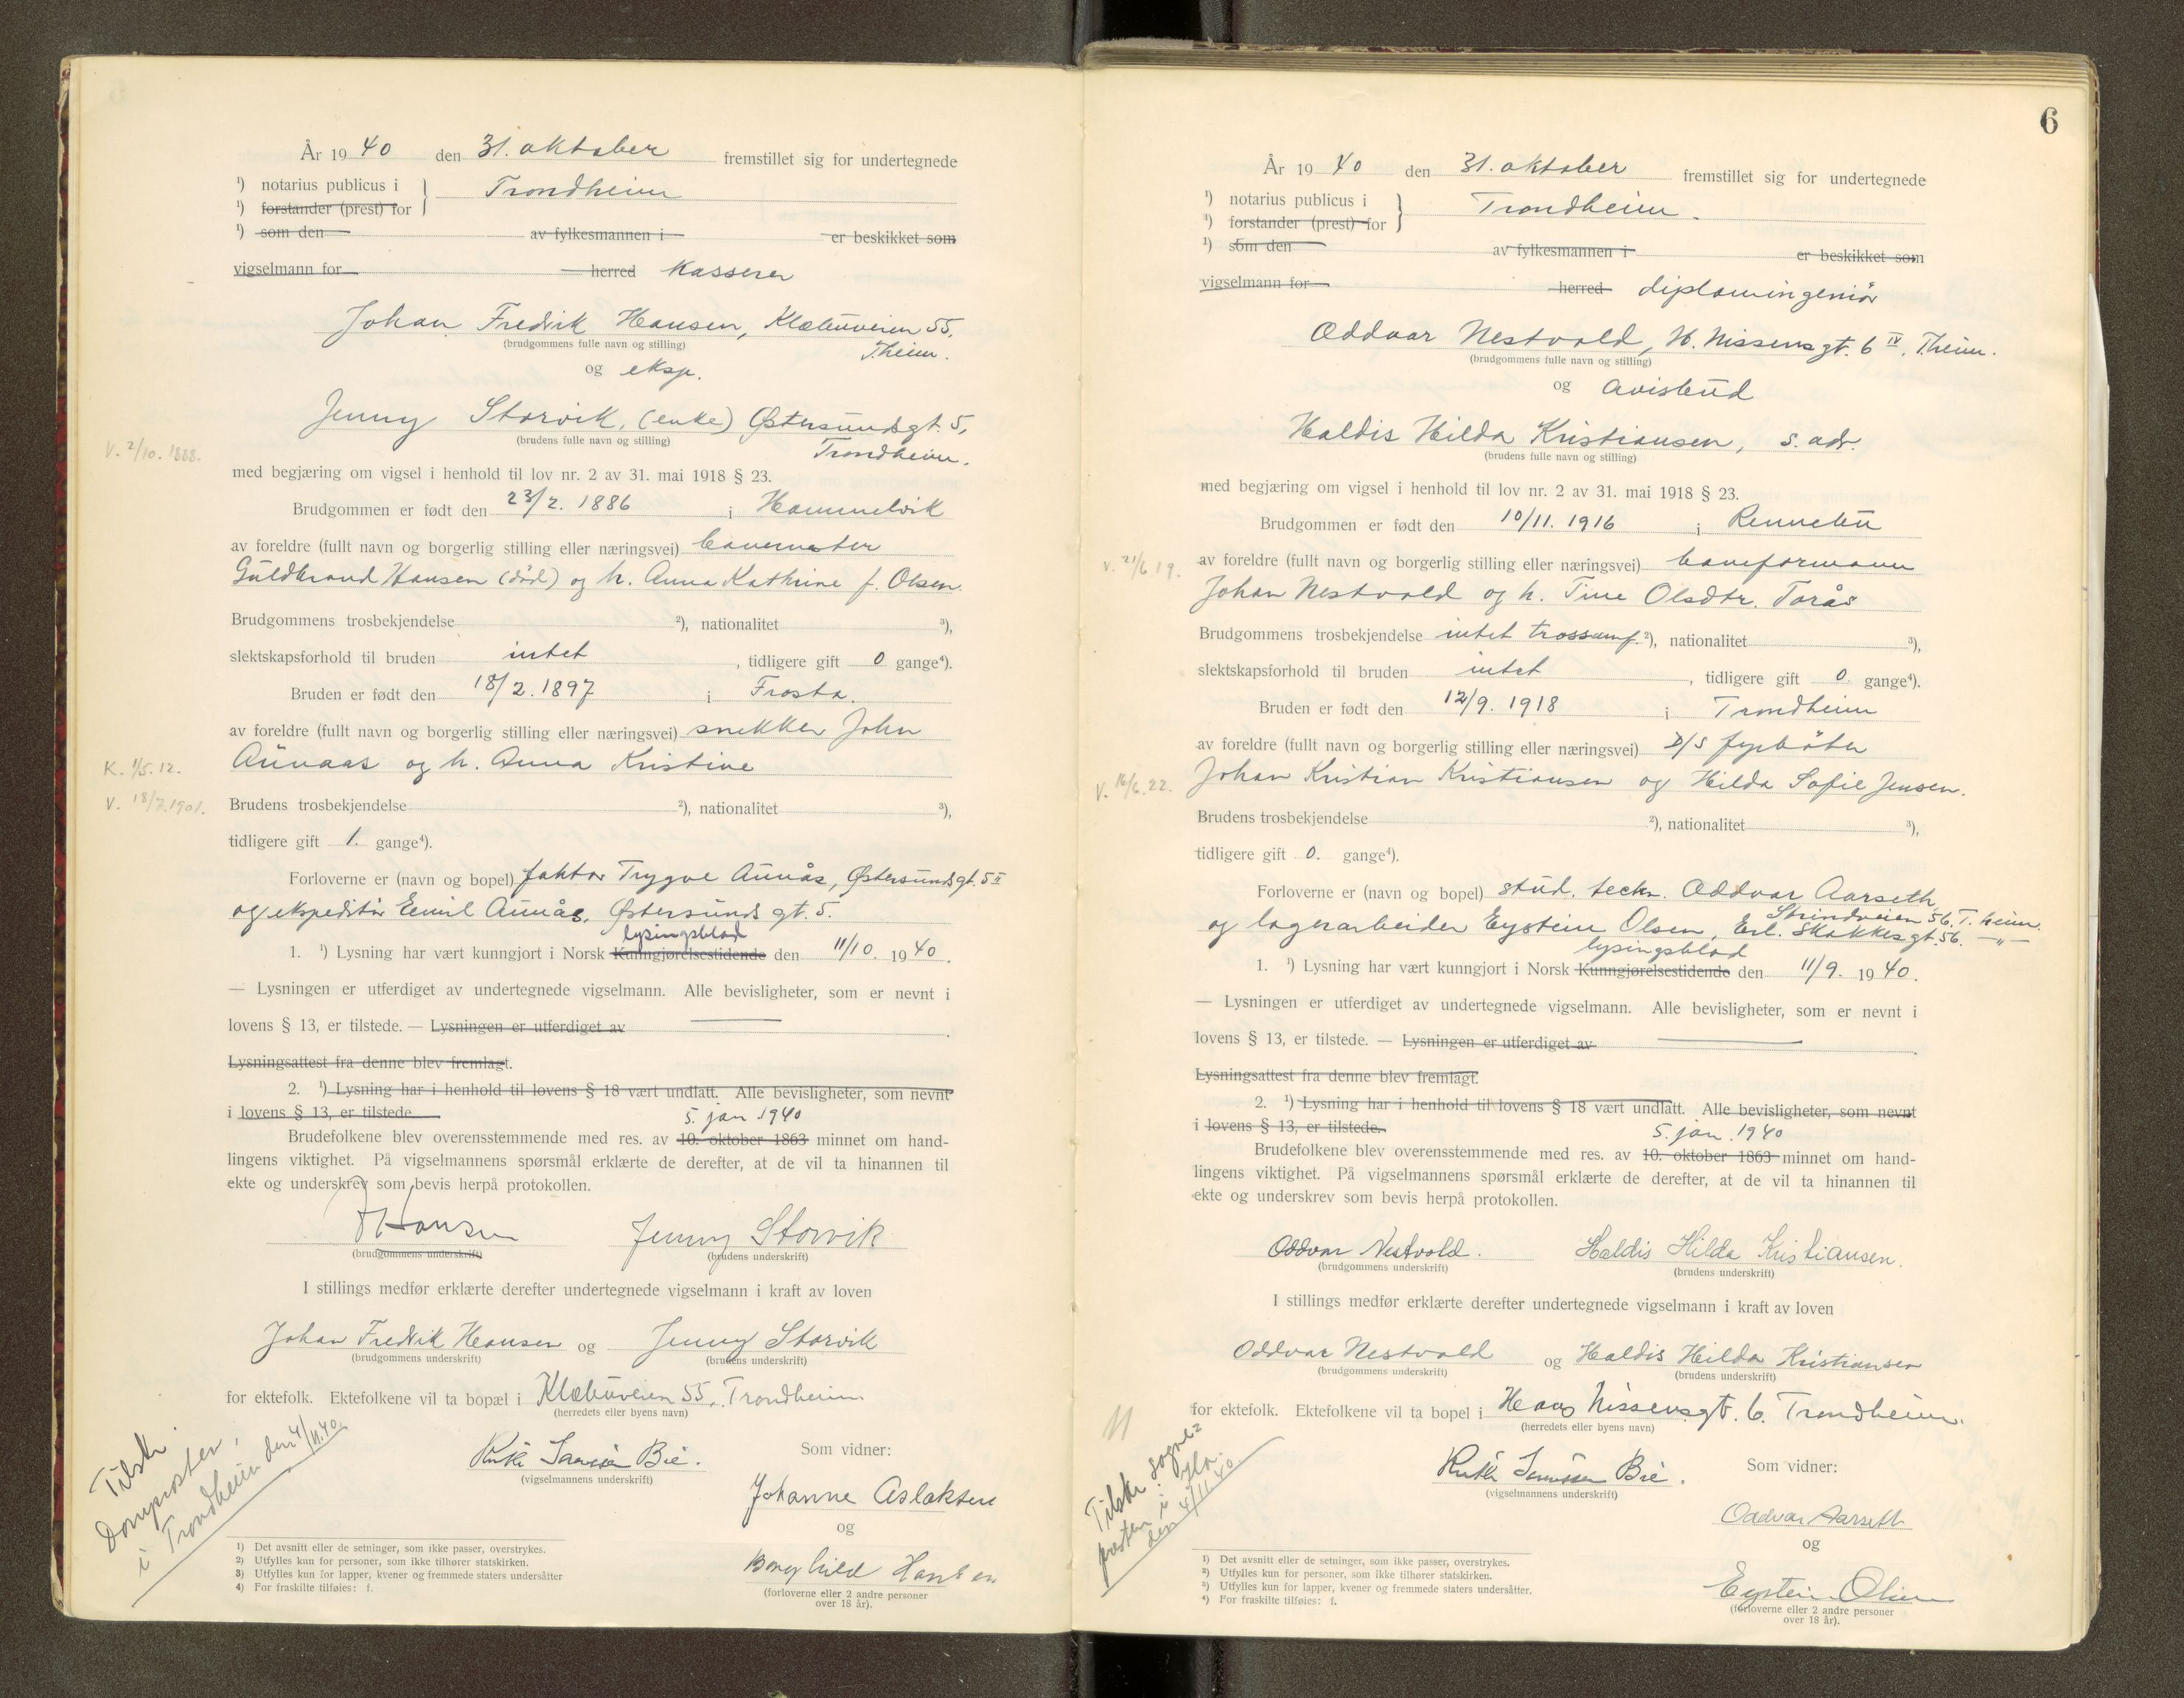 År 1940 den 31. oktober fremstillet sig for undertegnede
¹) notarius publicus i
¹) forstander (prest) for } Trondheim
¹) som den av fylkesmannen i er beskikket som
vigselmann for herred Kasserer
Johan Fredrik Hansen, Klæbuveien 55,
(brudgommens fulle navn og stilling) T.heim.
og eksp.
Jenny Storvik, (enke) Østersundsgt. 5,
(brudens fulle navn og stilling) Trondheim.
V. 2/10. 1888.
med begjæring om vigsel i henhold til lov nr. 2 av 31. mai 1918 § 23.
Brudgommen er født den 23/2. 1886 i Hommelvik
av foreldre (fullt navn og borgerlig stilling eller næringsvei) banemester
Guldbrand Hansen (død) og h. Anna Kathrine f. Olsen.
Brudgommens trosbekjendelse ²), nationalitet ³),
slektskapsforhold til bruden intet, tidligere gift 0 gange⁴).
Bruden er født den 18/2. 1897 i Frosta.
av foreldre (fullt navn og borgerlig stilling eller næringsvei) snekker John
Aunaas og h. Anna Kristine
K. 1/5. 12.
V. 18/7. 1901.
Brudens trosbekjendelse ²), nationalitet ³),
tidligere gift 1. gange⁴).
Forloverne er (navn og bopel) faktor Trygve Aunås, Østersundsgt. 5 II
og ekspeditør Emil Aunås, Østersunds gt. 5.
lysingsblad
1. ¹) Lysning har vært kunngjort i Norsk Kunngjørelsestidende den 11/10. 1940.
— Lysningen er utferdiget av undertegnede vigselmann. Alle bevisligheter, som er nevnt i
lovens § 13, er tilstede. — Lysningen er utferdiget av
Lysningsattest fra denne blev fremlagt.
2. ¹) Lysning har i henhold til lovens § 18 vært undlatt. Alle bevisligheter, som nevnt
i lovens § 13, er tilstede.
5. jan 1940
Brudefolkene blev overensstemmende med res. av 10. oktober 1863 minnet om hand-
lingens viktighet. På vigselmannens spørsmål erklærte de derefter, at de vil ta hinannen til
ekte og underskrev som bevis herpå protokollen.
Hansen Jenny Storvik
(brudgommens underskrift) (brudens underskrift)
I stillings medfør erklærte derefter undertegnede vigselmann i kraft av loven
Johan Fredrik Hansen og Jenny Storvik
(brudgommens underskrift) (brudens underskrift)
for ektefolk. Ektefolkene vil ta bopæl i Klæbuveien 55, Trondheim
(herredets eller byens navn)
Tilskr.
Domprosten,
i Trondheim den 4/11.40.
Som vidner:
Ruth Bie.
(vigselmannens underskrift)
Johanne Aslaksen
og
Borghild Hansen
(forloverne eller 2 andre personer
over 18 år).
1) Det avsnitt eller de setninger, som ikke passer, overstrykes.
2) Utfylles kun for personer, som ikke tilhører statskirken.
3) Utfylles kun for lapper, kvener og fremmede staters undersåtter
4) For fraskilte tilføies: f.
6
År 1940 den 31. oktober fremstillet sig for undertegnede
¹) notarius publicus i
¹) forstander (prest) for } Trondheim.
¹) som den av fylkesmannen i er beskikket som
vigselmann for herred diplomingeniør
Oddvar Nestvold, H. Nissens gt. 6 IV. T.heim.
(brudgommens fulle navn og stilling)
og avisbud
Haldis Hilda Kristiansen, s. adr.
(brudens fulle navn og stilling)
med begjæring om vigsel i henhold til lov nr. 2 av 31. mai 1918 § 23.
Brudgommen er født den 10/11. 1916 i Rennebu
V. 21/6 19.
av foreldre (fullt navn og borgerlig stilling eller næringsvei) baneformann
Johan Nestvold og h. Tine Olsdtr. Torås
Brudgommens trosbekjendelse intet trossamf. ²), nationalitet ³),
slektskapsforhold til bruden intet, tidligere gift 0. gange⁴).
Bruden er født den 12/9. 1918 i Trondheim
av foreldre (fullt navn og borgerlig stilling eller næringsvei) D/S fyrbøter
Johan Kristian Kristiansen og Hilda Sofie Jensen.
V. 16/6. 22.
Brudens trosbekjendelse ²), nationalitet ³),
tidligere gift 0. gange⁴).
Forloverne er (navn og bopel) stud. techn. Oddvar Aarseth,
Strindveien 56, T.heim.
og lagerarbeider Eystein Olsen, Erl. Skakkes gt. 56. —"—
lysingsblad
1. ¹) Lysning har vært kunngjort i Norsk Kunngjørelsestidende den 11/9. 1940.
— Lysningen er utferdiget av undertegnede vigselmann. Alle bevisligheter, som er nevnt i
lovens § 13, er tilstede. — Lysningen er utferdiget av
Lysningsattest fra denne blev fremlagt.
2. ¹) Lysning har i henhold til lovens § 18 vært undlatt. Alle bevisligheter, som nevnt
i lovens § 13, er tilstede.
5. jan. 1940
Brudefolkene blev overensstemmende med res. av 10. oktober 1863 minnet om hand-
lingens viktighet. På vigselmannens spørsmål erklærte de derefter, at de vil ta hinannen til
ekte og underskrev som bevis herpå protokollen.
Oddvar Nestvold. Haldis Hilda Kristiansen.
(brudgommens underskrift) (brudens underskrift)
I stillings medfør erklærte derefter undertegnede vigselmann i kraft av loven
Oddvar Nestvold og Haldis Hilda Kristiansen
(brudgommens underskrift) (brudens underskrift)
for ektefolk. Ektefolkene vil ta bopel i Hans Nissensgt. 6. Trondheim.
(herredets eller byens navn)
Tilskr. sogne-
presten i Ila.
den 4/11.40.
Som vidner:
Ruth Bie.
(vigselmannens underskrift)
Oddvar Aarseth
og
Eystein Olsen
(forloverne eller 2 andre personer
over 18 år).
¹) Det avsnitt eller de setninger, som ikke passer, overstrykes.
²) Utfylles kun for personer, som ikke tilhører statskirken.
³) Utfylles kun for lapper, kvener og fremmede staters undersåtter.
⁴) For fraskilte tilføies: f.